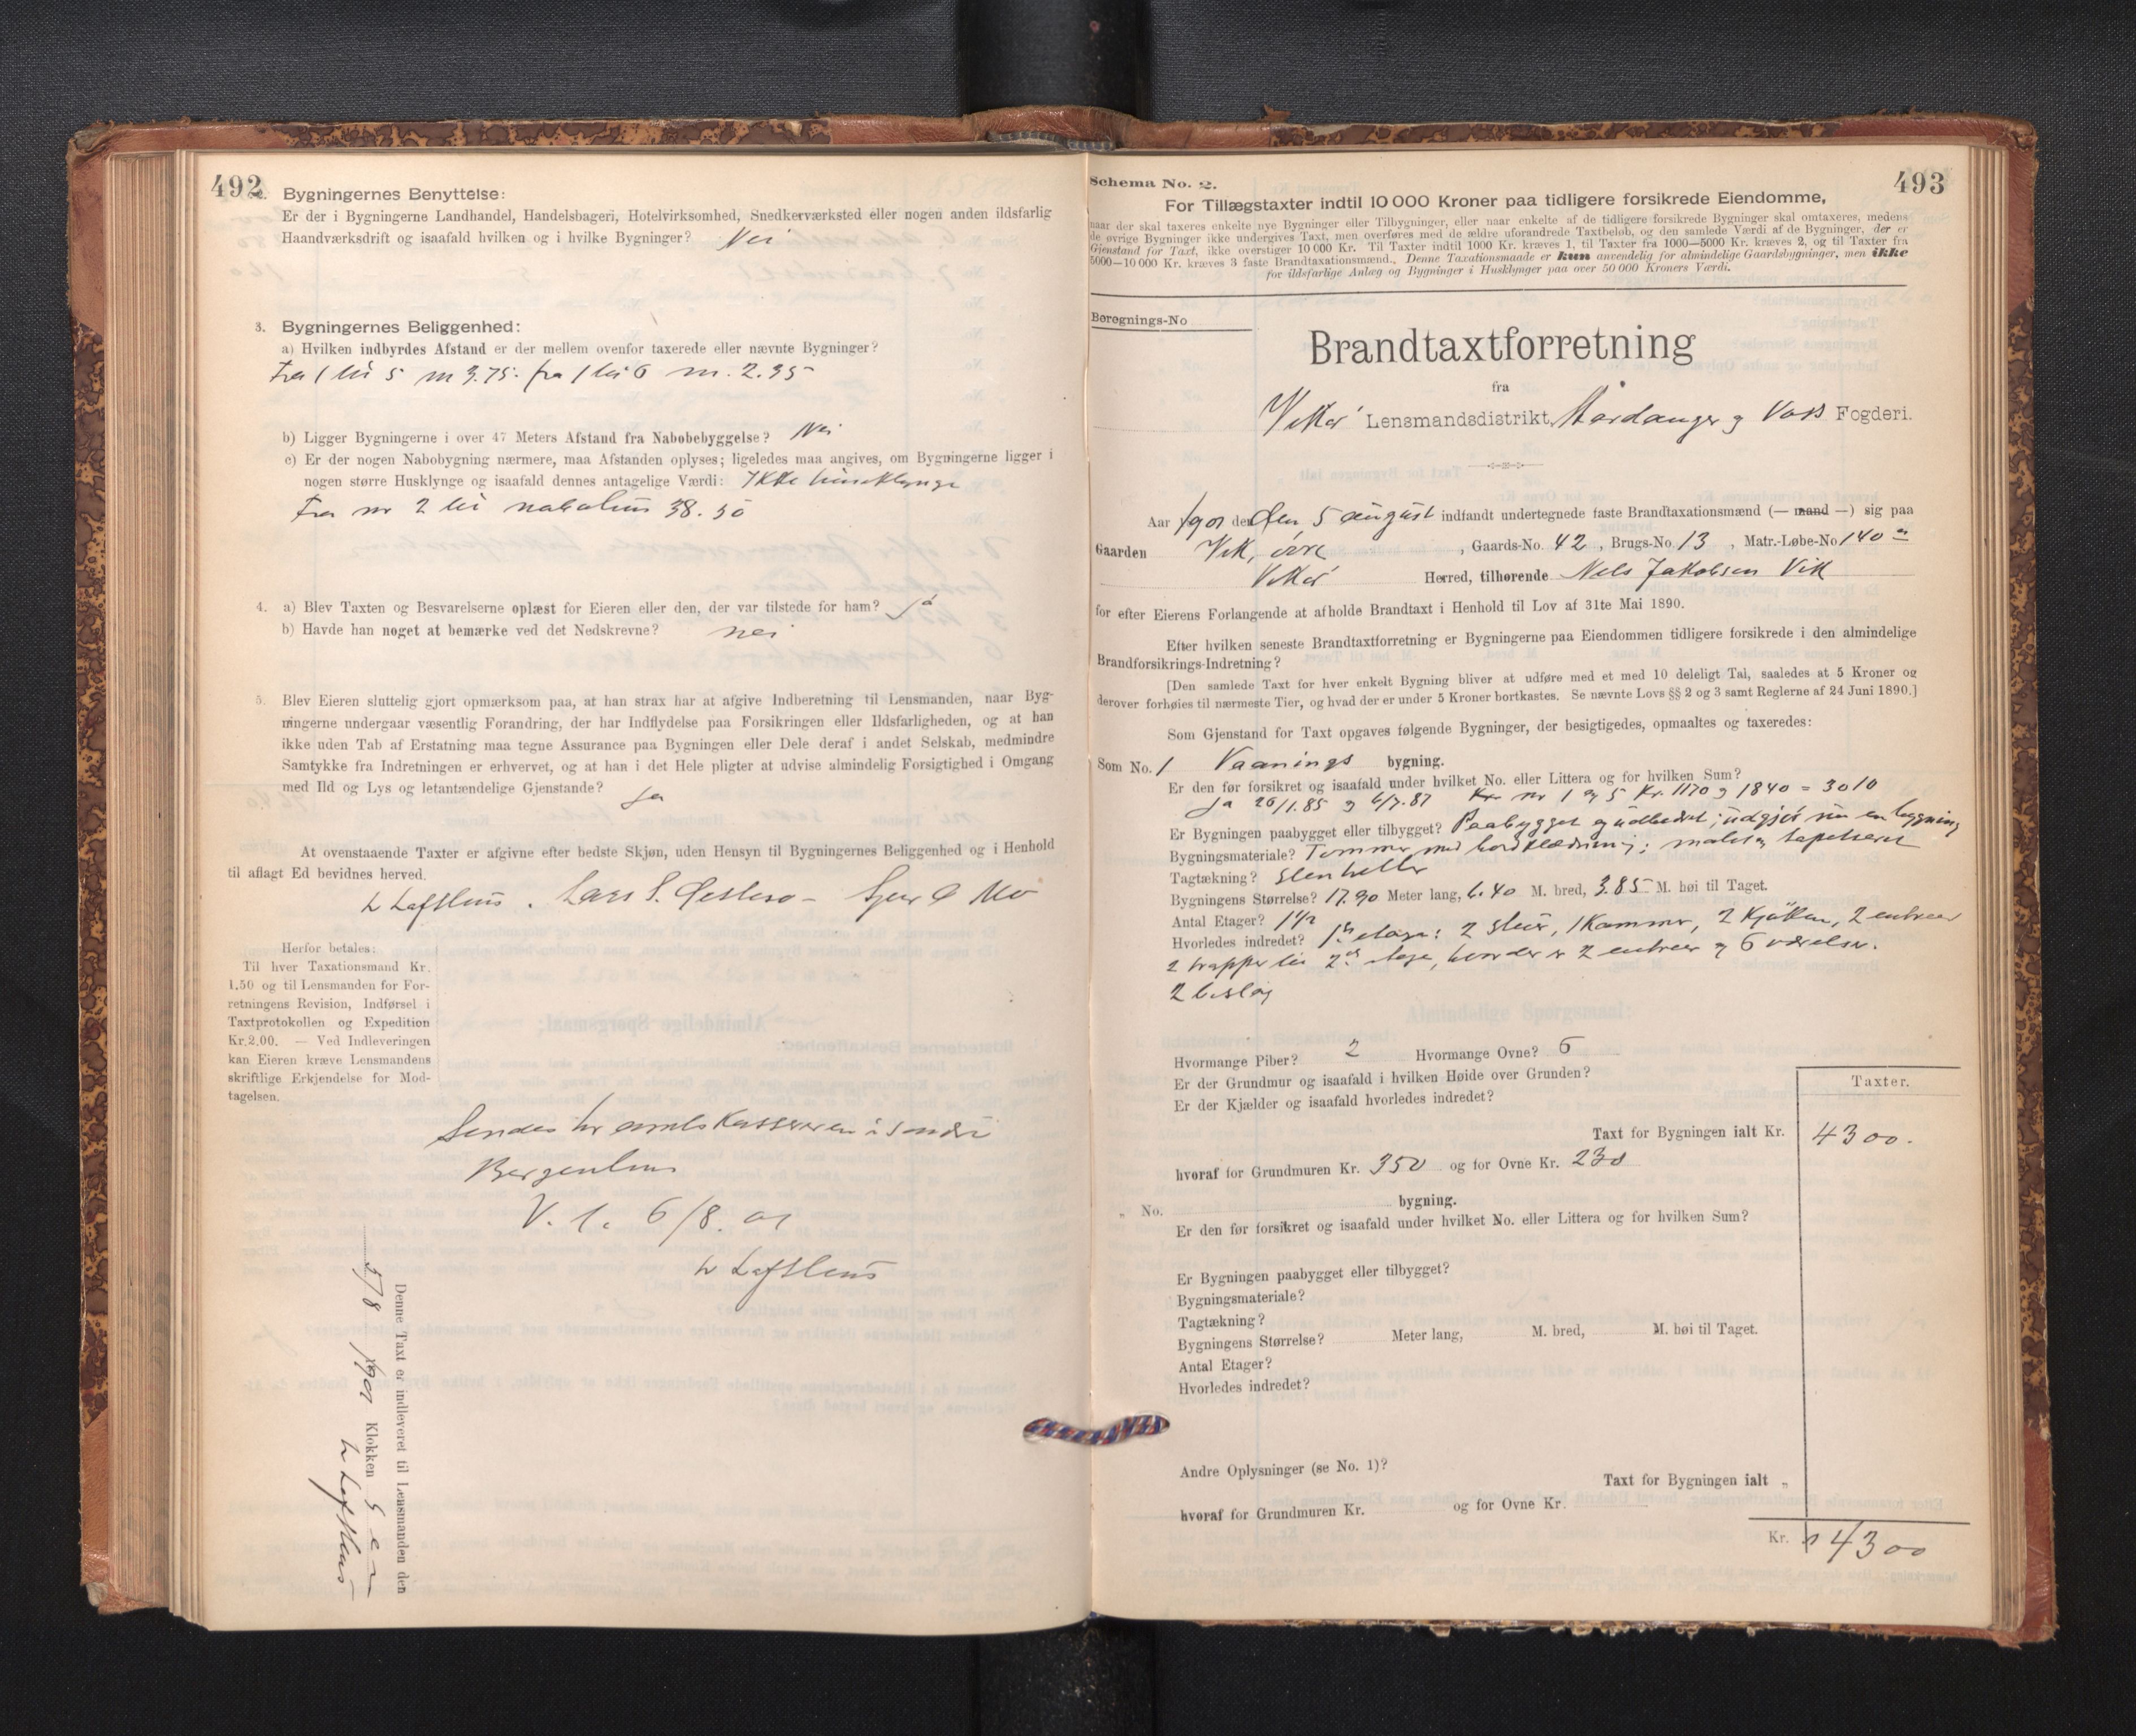 492
2. Bygningernes Benyttelse:
Er der i Bygningerne Landhandel, Handelsbageri, Hotelvirksomhed, Snedkerværksted eller nogen anden ildsfarlig
Haandværksdrift og isaafald hvilken og i hvilke Bygninger? Nei
3. Bygningernes Beliggenhed:
a) Hvilken indbyrdes Afstand er der mellem ovenfor taxerede eller nævnte Bygninger?
Fra 1 til 5 m 3.75. fra 1 til 6 m. 2.35
b) Ligger Bygningerne i over 47 Meters Afstand fra Nabobebyggelse? Nei
c) Er der nogen Nabobygning nærmere, maa Afstanden oplyses; ligeledes maa angives, om Bygningerne ligger i
nogen større Husklynge og isaafald dennes antagelige Værdi: Ikke huseklynge
Fra nr 2 til nabohus 38.50
4. a) Blev Taxten og Besvarelserne oplæst for Eieren eller den, der var tilstede for ham? Ja
b) Havde han noget at bemærke ved det Nedskrevne? nei
5. Blev Eieren sluttelig gjort opmærksom paa, at han strax har at afgive Indberetning til Lensmanden, naar Byg-
ningerne undergaar væsentlig Forandring, der har Indflydelse paa Forsikringen eller Ildsfarligheden, og at han
ikke uden Tab af Erstatning maa tegne Assurance paa Bygningen eller Dele deraf i andet Selskab, medmindre
Samtykke fra Indretningen er erhvervet, og at han i det Hele pligter at udvise almindelig Forsigtighed i Omgang
med Ild og Lys og letantændelige Gjenstande? Ja
At ovenstaaende Taxter er afgivne efter bedste Skjøn, uden Hensyn til Bygningernes Beliggenhed og i Henhold
til aflagt Ed bevidnes herved.
L Lofthus. Lars S. Mo
Herfor betales:
Til hver Taxationsmand Kr.
1,50 og til Lensmanden for For-
retningens Revision, Indførsel i
Taxtprotokollen og Expedition
Kr. 2,00. — Ved Indleveringen
kan Eieren kræve Lensmandens
skriftlige Erkjendelse for Mod-
tagelsen.
Sendes hr amtskassereren i søndre
Bergenhus
V. L. 6/8. 01
L Lofthus
Denne Taxt er indleveret til Lensmanden den
5/8 1901 Klokken 5 em
L Lofthus
493
Schema No. 2.
For Tillægstaxter indtil 10 000 Kroner paa tidligere forsikrede Eiendomme,
naar der skal taxeres enkelte nye Bygninger eller Tilbygninger, eller naar enkelte af de tidligere forsikrede Bygninger skal omtaxeres, medens
de øvrige Bygninger ikke undergives Taxt, men overføres med de ældre uforandrede Taxtbeløb, og den samlede Værdi af de Bygninger, der er
Gjenstand for Taxt, ikke overstiger 10 000 Kr. Til Taxter indtil 1000 Kr. kræves 1, til Taxter fra 1000—5000 Kr. kræves 2, og til Taxter fra
5000—10 000 Kr. kræves 3 faste Brandtaxationsmænd. Denne Taxationsmaade er kun anvendelig for almindelige Gaardsbygninger, men ikke
for ildsfarlige Anlæg og Bygninger i Husklynger paa over 50 000 Kroners Værdi.
Beregnings-No
Brandtaxtforretning
fra
Vikør Lensmandsdistrikt, Hardanger og Voss Fogderi.
Aar 1901 den 5 august indfandt undertegnede faste Brandtaxationsmænd (— mand —) sig paa
Gaarden Vik, øvre, Gaards-No. 42, Brugs-No. 13, Matr.-Løbe-No 140
Vikør Herred, tilhørende Nels Jakobsen Vik
for efter Eierens Forlangende at afholde Brandtaxt i Henhold til Lov af 31te Mai 1890.
Efter hvilken seneste Brandtaxtforretning er Bygningerne paa Eiendommen tidligere forsikrede i den almindelige
Brandforsikrings-Indretning?
[Den samlede Taxt for hver enkelt Bygning bliver at udføre med et med 10 deleligt Tal, saaledes at 5 Kroner og
derover forhøies til nærmeste Tier, og hvad der er under 5 Kroner bortkastes. Se nævnte Lovs §§ 2 og 3 samt Reglerne af 24 Juni 1890.]
Som Gjenstand for Taxt opgaves følgende Bygninger, der besigtigedes, opmaaltes og taxeredes:
Som No. 1 Vaanings bygning.
Er den før forsikret og isaafald under hvilket No. eller Littera og for hvilken Sum?
Ja 26/1.85 og 4/7.87 nr 1 og 5 Kr. 1170 og 1840 = 3010
Er Bygningen paabygget eller tilbygget? Paabygget og udbedret; udgjør nu en bygning
Bygningsmateriale? Tømmer med bordklædning; malet og tapetseret
Tagtækning? Stenheller
Bygningens Størrelse? 17.90 Meter lang, 6.40 M. bred, 3.85 M. høi til Taget.
Antal Etager? 1 1/2
Hvorledes indredet? 1ste etage: 2 stuer, 1 Kammer, 2 Kjøkken, 2 entreer
2 trapper til 2den etage, hvor der er 2 entreer og 6 værelser.
2 bislag
Hvormange Piber? 2 Hvormange Ovne? 6
Er der Grundmur og isaafald i hvilken Høide over Grunden?
Er der Kjælder og isaafald hvorledes indredet?
Taxter.
Taxt for Bygningen ialt Kr. 4300.
hvoraf for Grundmuren Kr. 350 og for Ovne Kr. 230
„ No. bygning.
Er den før forsikret og isaafald under hvilket No. eller Littera og for hvilken Sum?
Er Bygningen paabygget eller tilbygget?
Bygningsmateriale?
Tagtækning?
Bygningens Størrelse? Meter lang, M. bred, M. høi til Taget.
Antal Etager?
Hvorledes indredet?
Andre Oplysninger (se No. 1)?
Taxt for Bygningen ialt „
hvoraf for Grundmuren Kr. og for Ovne Kr.
Kr. 4300